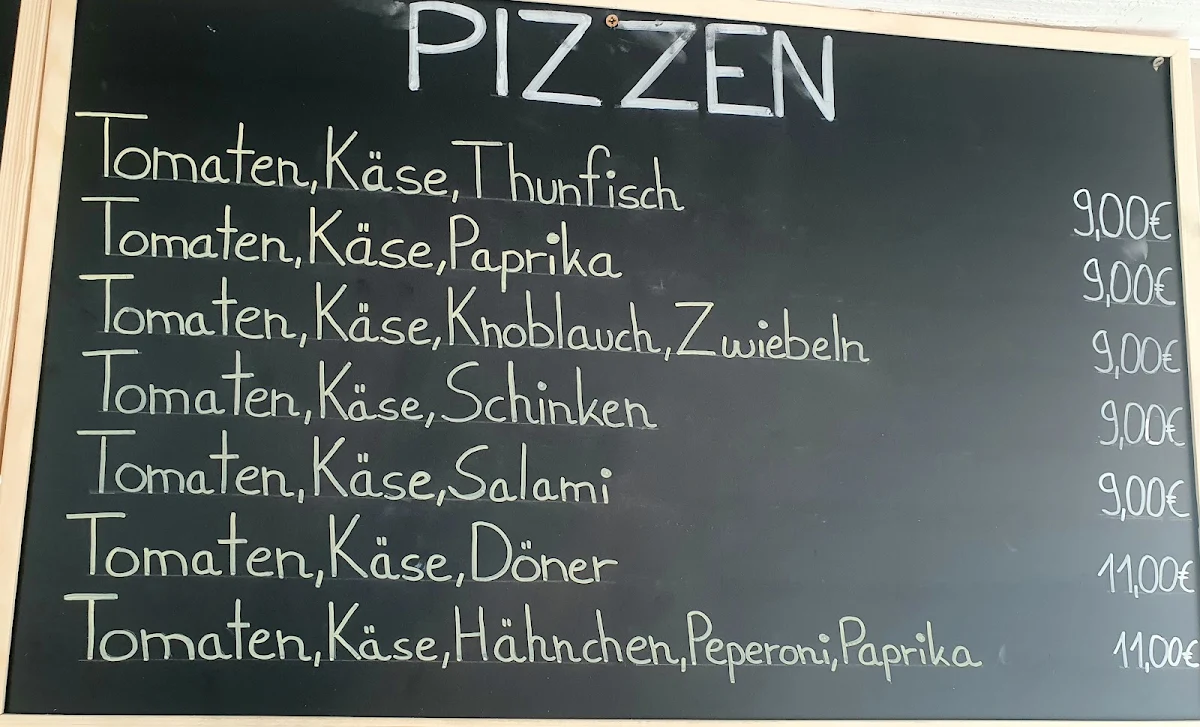 PIZZEN
Tomaten,Käse,Thunfisch 9,00€
Tomaten,Käse,Paprika 9,00€
Tomaten,Käse,Knoblauch,Zwiebeln 9,00€
Tomaten,Käse,Schinken 9,00€
Tomaten,Käse,Salami 9,00€
Tomaten,Käse,Döner 11,00€
Tomaten,Käse,Hähnchen,Peperoni,Paprika 11,00€